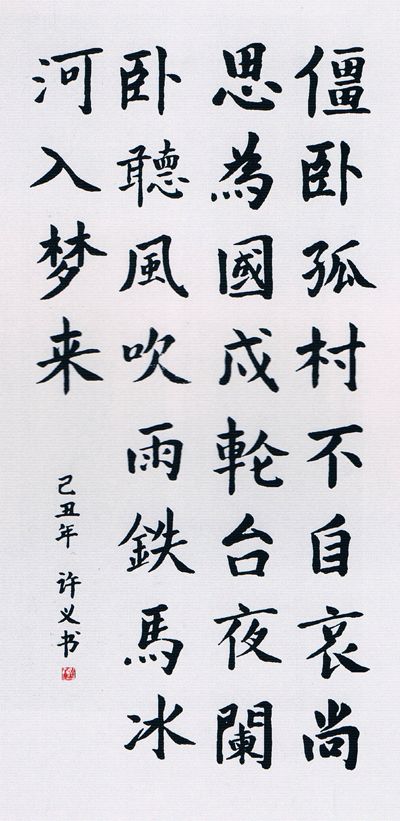 僵卧孤村不自哀尚
思為國戍輪台夜闌
卧聽風吹雨鉄馬冰
河入梦来
己丑年 许义书